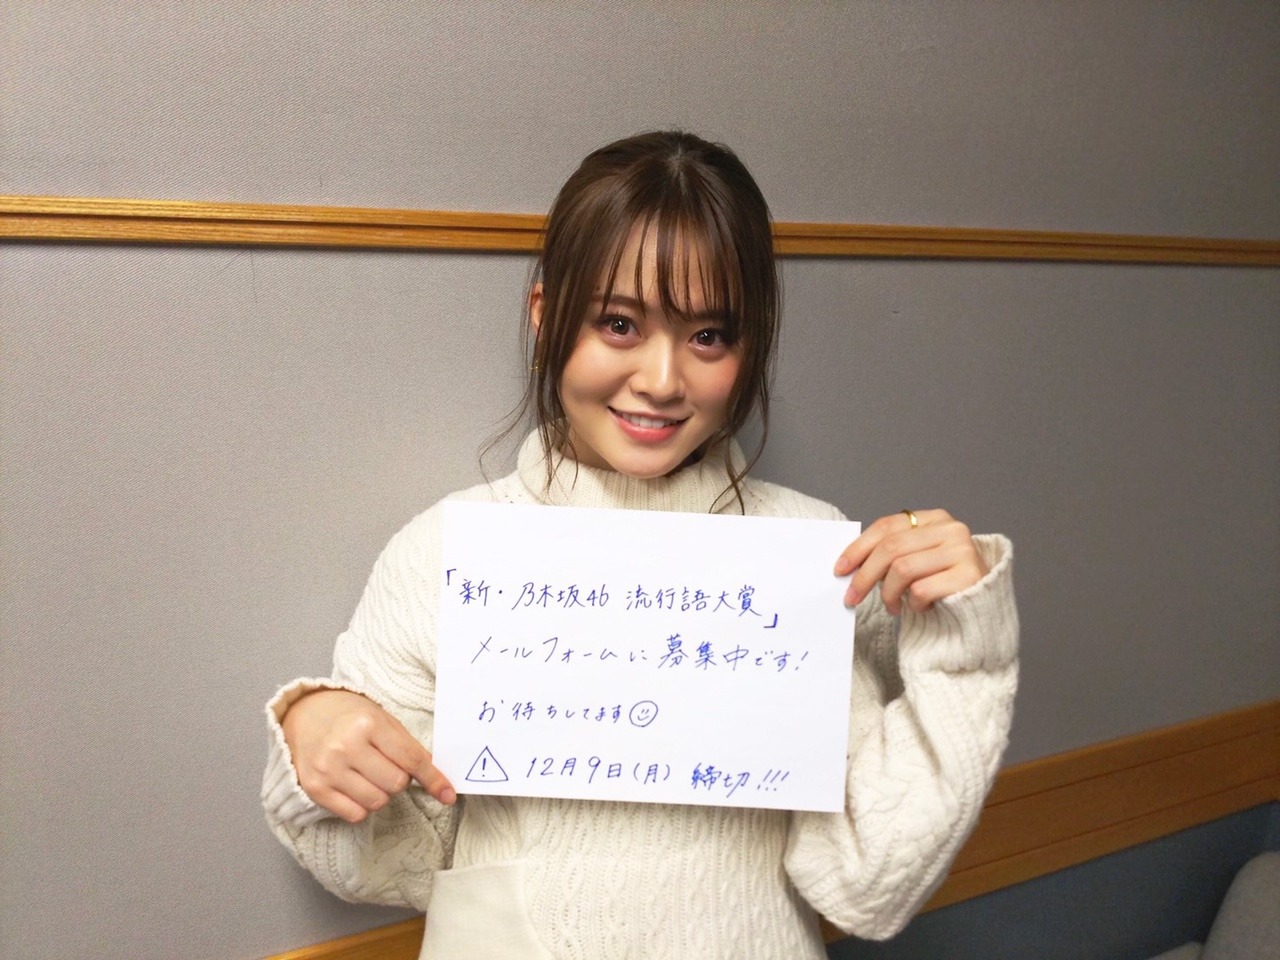 「新・乃木坂46 流行語大賞」
メールフォームに募集中です!
お待ちしてます☺
⚠ 12月9日(月) 締切!!!